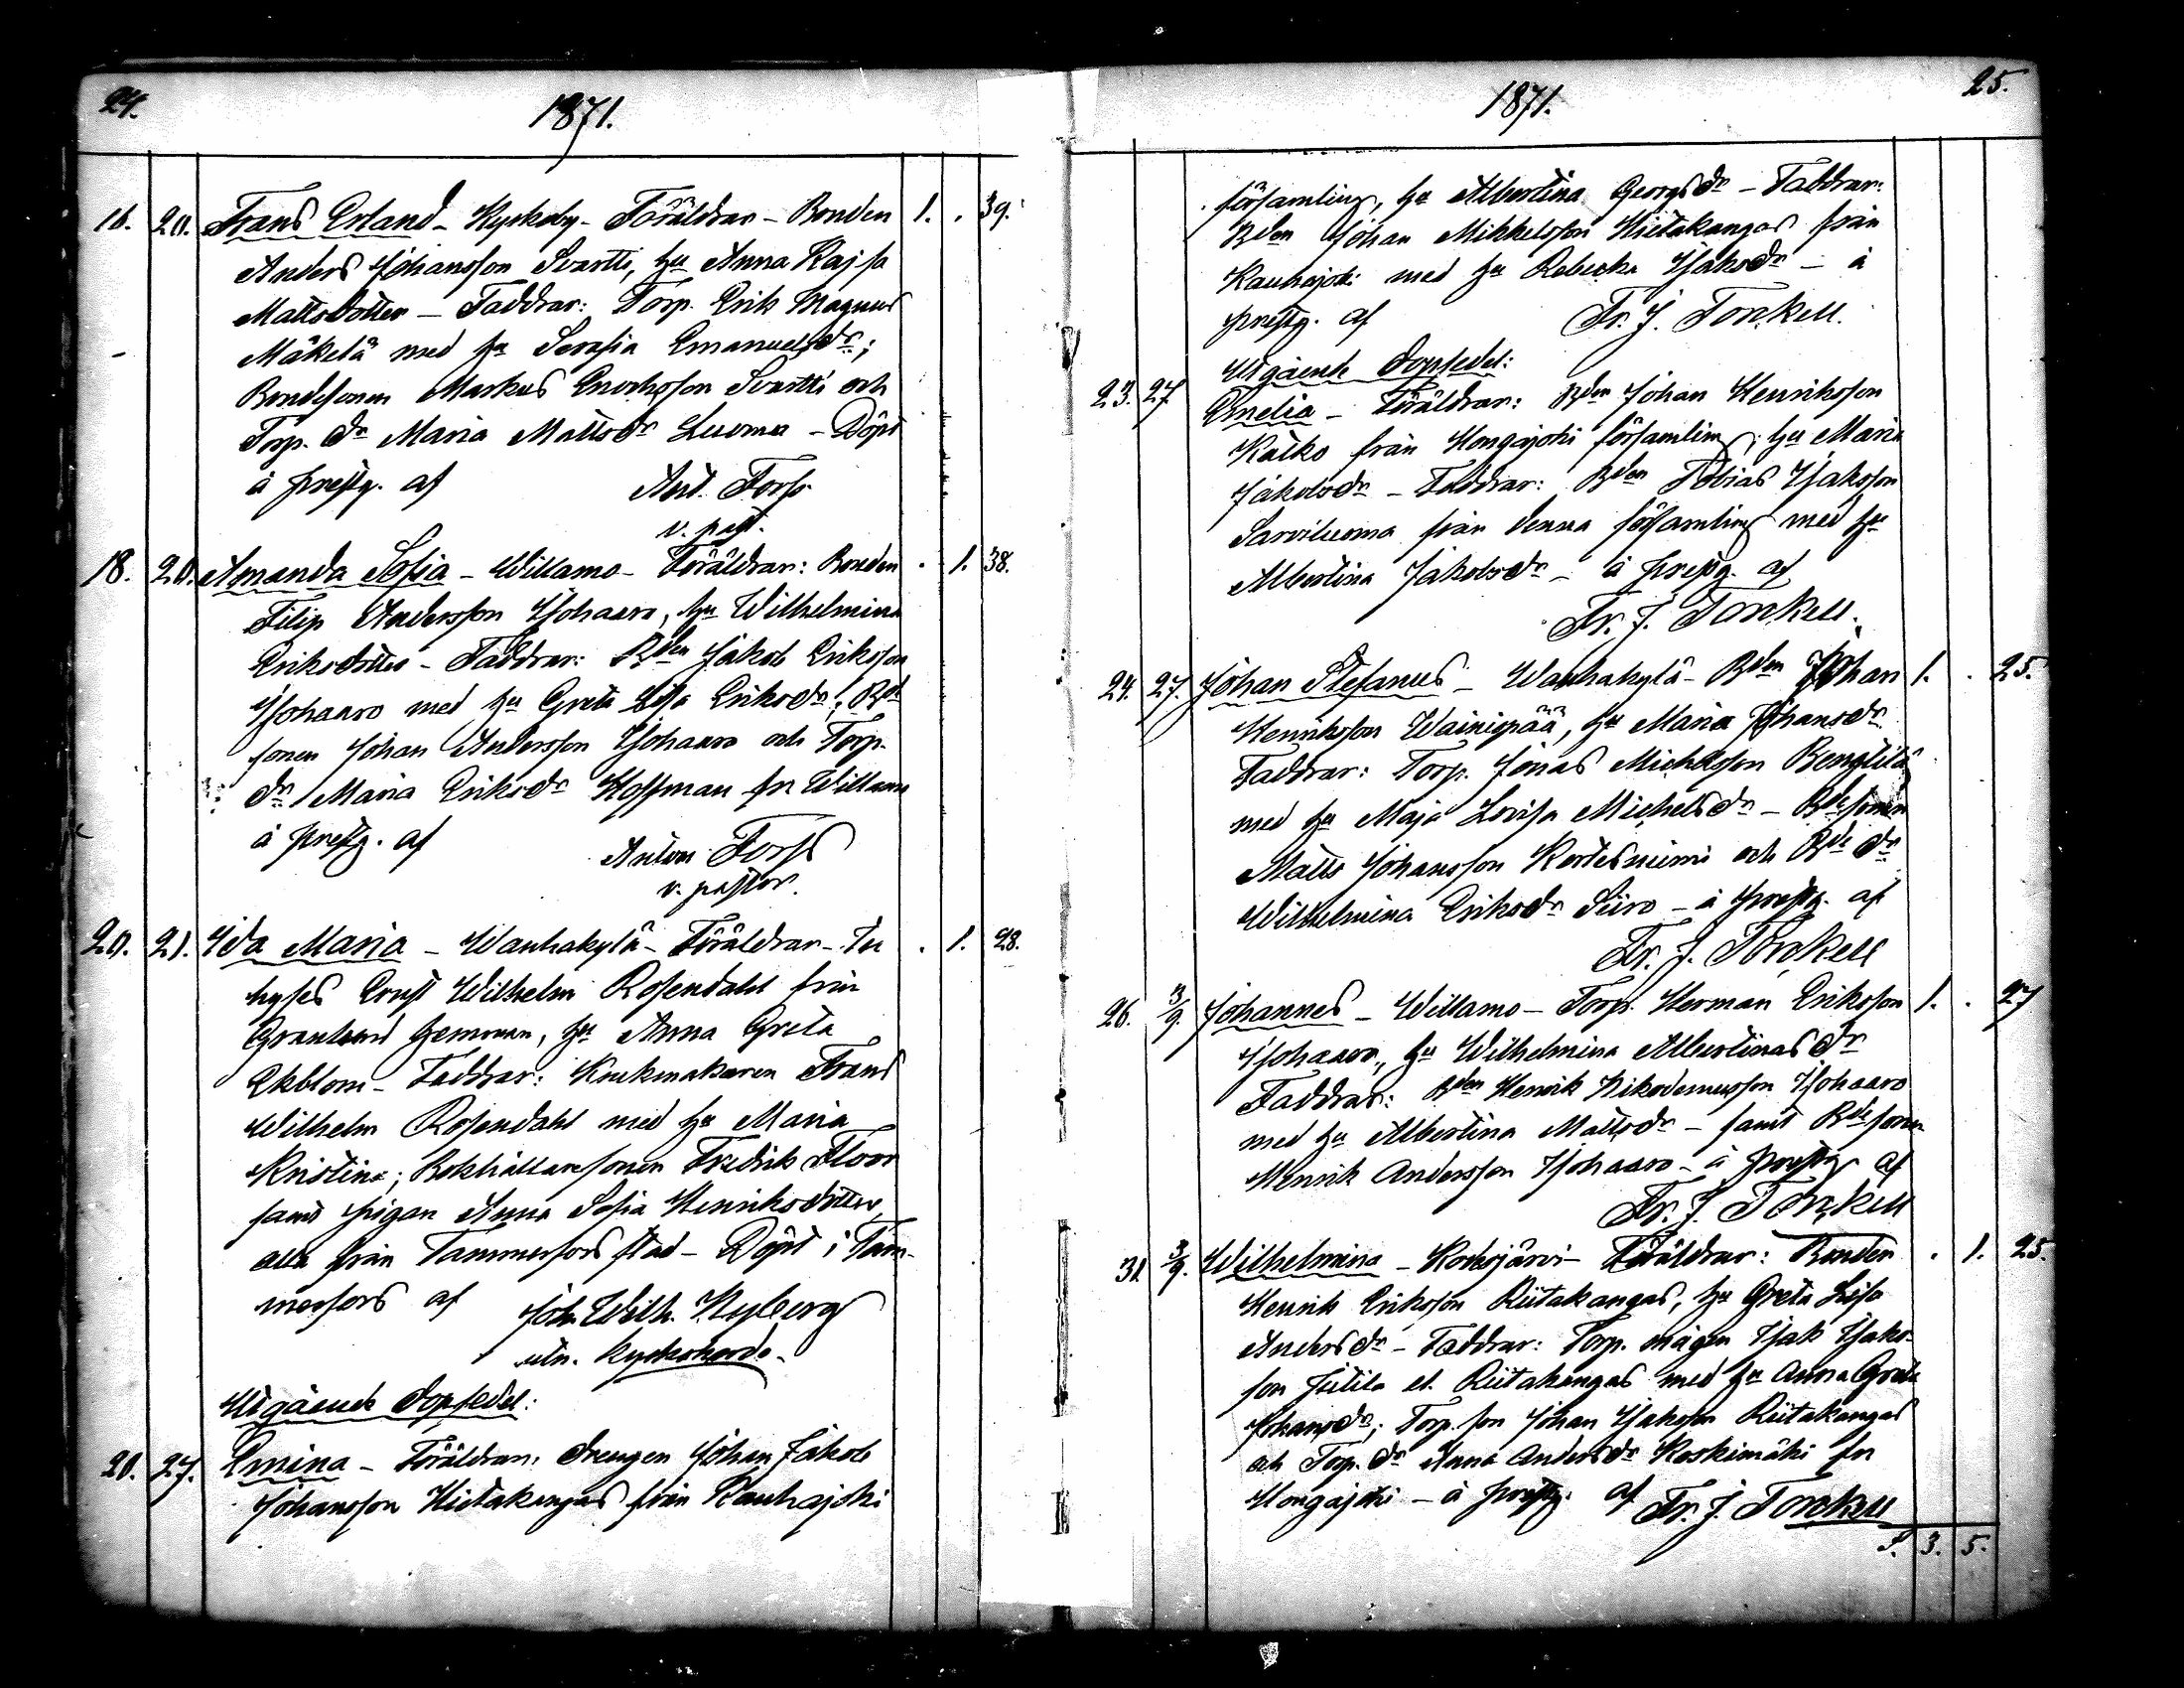 24.
1871.
16. 20. Frans Erland - Kyrkoby - Föräldrar - Bonden 1. . 39.
Anders Johansson Svartti, hu Anna Kajsa
Mattsdotter - Faddrar: Torp. Erik Magnus
Mäkelä med hu Serafia Emanuelsdr;
Bondesonen Markus Enochsson Svartti och
Torp. dr Maria Mattsdr Luoma - Döpt
å prestg. af Ant. Forss
v. past.
18. 20. Amanda Sofia - Willamo - Föräldrar: Bonden . 1. 38.
Filip Andersson Yjohaaro, hu Wilhelmina
Eriksdotter - Faddrar: Bden Jakob Eriksson
Yjohaaro med hu Greta Lisa Eriksdr; Bde
sonen Johan Andersson Yjohaaro och Torp.
dr Maria Eriksdr Hoffman fr. Willamo
å prestg. af Anton Forss
v. pastor.
20. 21. Ida Maria - Wanhakylä - Föräldrar - In . 1. 28.
hyses Ernst Wilhelm Rosendahl från
Granlund hemman, hu Anna Greta
Ekblom - Faddrar: Krukmakaren Frans
Wilhelm Rosendahl med hu Maria
Kristina; Bokhållaresonen Fredrik Floor
samt pigan Anna Sofia Henriksdotter,
alla från Tammerfors stad - Döpt i Tam-
merfors af Joh. Wilh. Nyberg
utn. kyrkoherde.
Utgående dopsedel:
20. 27. Emina - Föräldrar: drengen Johan Jakob
Johansson Hietakangas från Kauhajoki
25.
1871.
församling, hu Albertina Georgsdr - Faddrar:
Bden Johan Mikkelsson Hietakangas från
Kauhajoki med hu Rebecka Isaksdr - å
prestg. af Fr. J. Torckell.
Utgående dopsedel:
23. 27. Emelia - Föräldrar: Bden Johan Henriksson
Kaiko från Hongajoki församling; hu Maria
Jakobsdr - Faddrar: Bden Tobias Isaksson
Sarviluoma från denna församling med hu
Albertina Jakobsdr - å prestg. af
Fr. J. Torckell.
24. 27. Johan Stefanus - Wanhakylä - Bden Johan 1. . 25.
Henriksson Wainiopää, hu Maria Johansdr
Faddrar: Torp. Jonas Michelsson Bengtilä
med hu Maja Lovisa Michelsdr - Bdesonen
Matts Johansson Kortesniemi och Bde dr
Wilhelmina Eriksdr Siiro - å prestg. af
Fr. J. Torckell
26. 3/9. Johannes - Willamo - Torp. Herman Eriksson 1. . 27
Yjohaaro, hu Wilhelmina Albertinasdr
Faddrar: Bden Henrik Nikodemusson Yjohaaro
med hu Albertina Mattsdr - samt Bdesonen
Henrik Andersson Yjohaaro - å prestg. af
Fr. J. Torckell
31. 3/9. Wilhelmina - Kodesjärvi - Föräldrar: Bonden . 1. 25.
Henrik Eriksson Riitakangas, hu Greta Lisa
Andersdr - Faddrar: Torp. mågen Isak Isaks-
son el. Riitakangas med hu Anna Greta
Johansdr; Torp. son Johan Isaksson Riitakangas
och Torp. dr Anna Andersdr Koskimäki fr
Hongajoki - å prestg. af Fr. J. Torckell
3. 5.